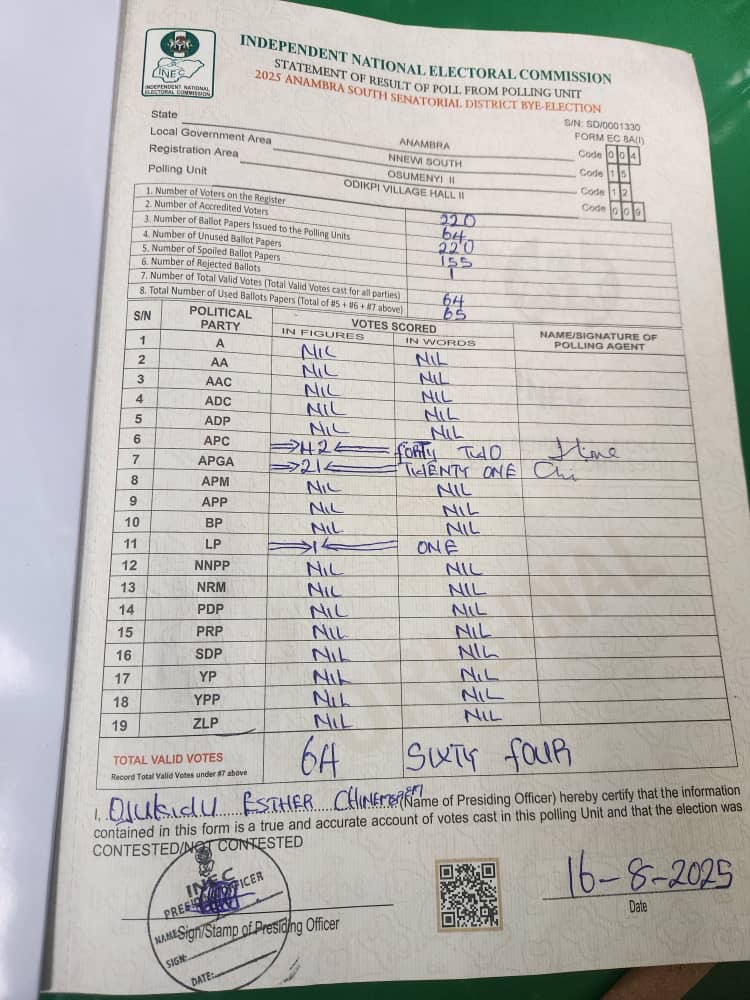 INEC
INDEPENDENT NATIONAL
ELECTORAL COMMISSION
INDEPENDENT NATIONAL ELECTORAL COMMISSION
STATEMENT OF RESULT OF POLL FROM POLLING UNIT
2025 ANAMBRA SOUTH SENATORIAL DISTRICT BYE-ELECTION
S/N: SD/0001330
FORM EC 8A(I)
State ANAMBRA Code 004
Local Government Area NNEWI SOUTH Code 15
Registration Area OSUMENYI II Code 12
Polling Unit ODIKPI VILLAGE HALL II Code 009
1. Number of Voters on the Register 220
2. Number of Accredited Voters 64
3. Number of Ballot Papers Issued to the Polling Units 220
4. Number of Unused Ballot Papers 155
5. Number of Spoiled Ballot Papers 1
6. Number of Rejected Ballots
7. Number of Total Valid Votes (Total Valid Votes cast for all parties) 64
8. Total Number of Used Ballots Papers (Total of #5 + #6 + #7 above) 65
S/N POLITICAL PARTY VOTES SCORED NAME/SIGNATURE OF POLLING AGENT
IN FIGURES IN WORDS
1 A NIL NIL
2 AA NIL NIL
3 AAC NIL NIL
4 ADC NIL NIL
5 ADP NIL NIL
6 APC 42 FORTY TWO
7 APGA 21 TWENTY ONE
8 APM NIL NIL
9 APP NIL NIL
10 BP NIL NIL
11 LP 1 ONE
12 NNPP NIL NIL
13 NRM NIL NIL
14 PDP NIL NIL
15 PRP NIL NIL
16 SDP NIL NIL
17 YP NIL NIL
18 YPP NIL NIL
19 ZLP NIL NIL
TOTAL VALID VOTES 64 SIXTY FOUR
Record Total Valid Votes under #7 above
I, ESTHER (Name of Presiding Officer) hereby certify that the information
contained in this form is a true and accurate account of votes cast in this polling Unit and that the election was
CONTESTED/NOT CONTESTED
INEC
PRESIDING OFFICER
NAME:
SIGN:
DATE:
Sign/Stamp of Presiding Officer
16-8-2025
Date